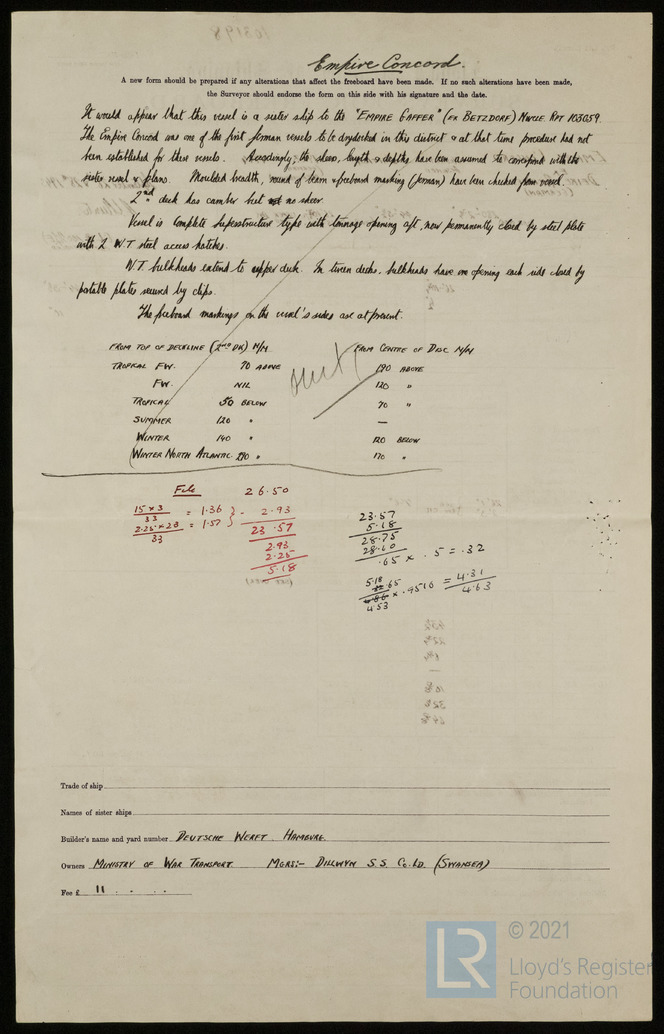 Empire Concord.
A new form should be prepared if any alterations that affect the freeboard have been made. If no such alterations have been made,
the Surveyor should endorse the form on this side with his signature and the date.
It would appear that this vessel is a sister ship to the "EMPIRE GAFFER" (ex BETZDORF) NWCLE RPT 103059.
The Empire Concord was one of the first German vessels to be drydocked in this district & at that time procedure had not
been established for these vessels. Accordingly, the sheer, length & depths have been assumed to correspond with the
sister vessel & plans. Moulded breadth, round of beam & freeboard marking (German) have been checked from vessel.
2nd deck has camber but no sheer.
Vessel is Complete Superstructure type with tonnage opening aft, now permanently closed by steel plate
with 2 W.T steel access hatches.
W.T bulkheads extend to upper deck. In tween decks, bulkheads have one opening each side closed by
portable plates secured by clips.
The freeboard markings on the vessel's sides are at present.
FROM TOP OF DECKLINE (2ND DK) M/M FROM CENTRE OF DISC M/M
TROPICAL FW. 70 ABOVE 190 ABOVE
FW. NIL 120 "
TROPICAL 50 BELOW 70 "
SUMMER 120 " —
WINTER 140 " 120 BELOW
WINTER NORTH ATLANTIC. 290 " 170 "
File 26.50
15 x 3 / 33 = 1.36 - 2.93
2.25 x 23 / 33 = 1.57 23.57
2.93
2.25
5.18
23.57
5.18
28.75
28.10
.65 x .5 = .32
5.18
.65
4.53 x .9516 = 4.31
4.63
Trade of ship
Names of sister ships
Builder's name and yard number DEUTSCHE WERFT. HAMBURG.
Owners MINISTRY OF WAR TRANSPORT. MGRS:- DILLWYN S.S. Co. LD. (SWANSEA)
Fee £ 11 . .
LR
© 2021
Lloyd's Register
Foundation